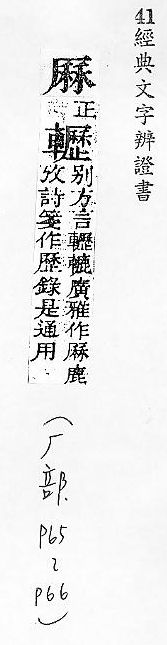 41經典文字辨證書
厤正
轣别方言轣轆廣雅作厤鹿
攷詩箋作歷錄是通用
(厂部. P65~P66)